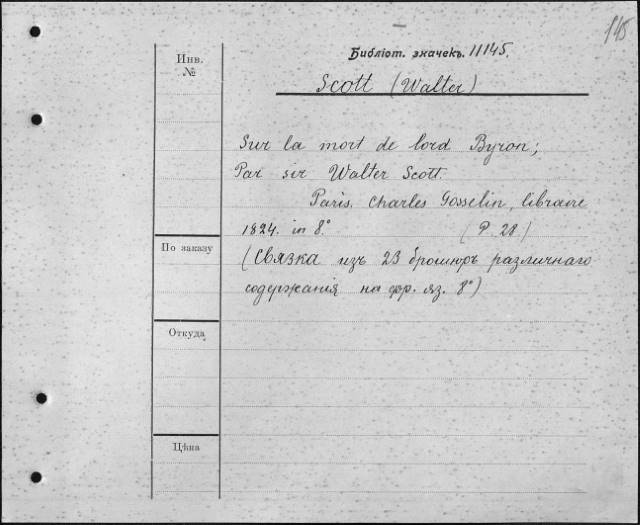 145
Библіот. значекъ. 11145.
Инв.
№
Scott (Walter)
Sur la mort de lord Byron;
Par sir Walter Scott.
Paris, Charles Gosselin, libraire
1824. in 8.° (P. 28.)
По заказу
(Связка изъ 23 брошюръ различнаго
содержания на фр. яз. 8°)
Откуда
Цѣна